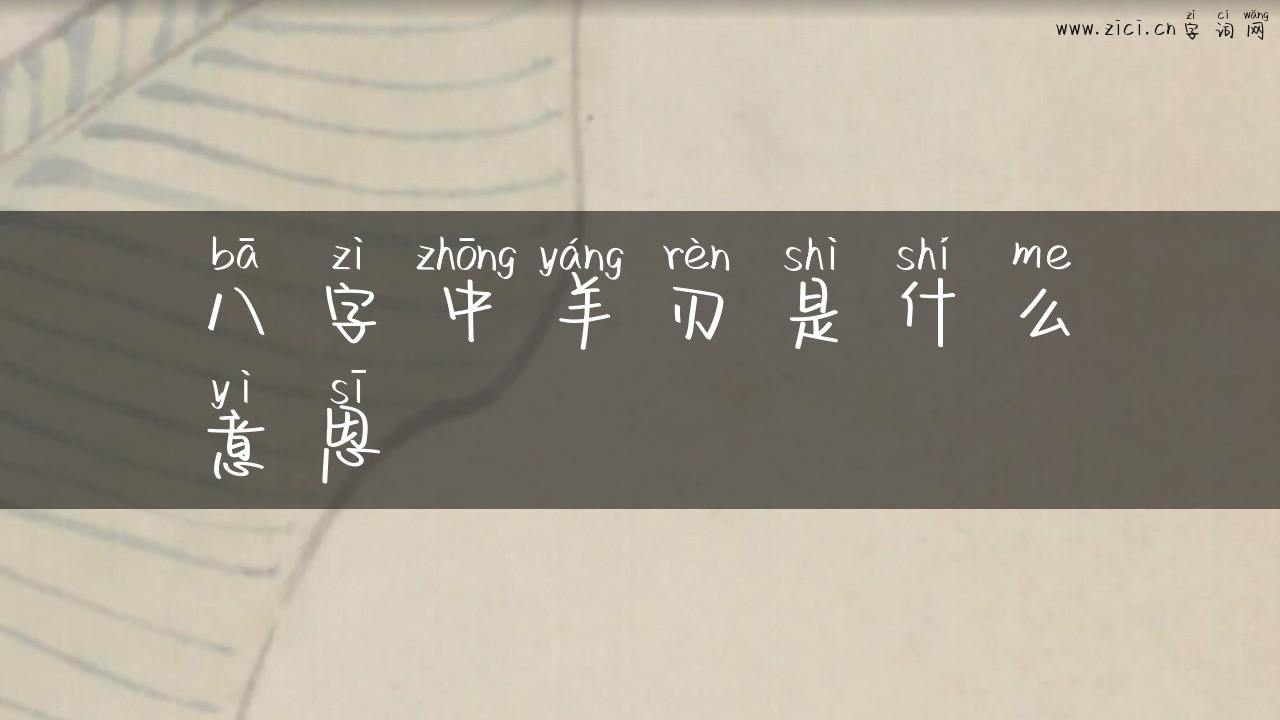 zì cí wǎng
www.zici.cn字词网
bā zì zhōng yáng rèn shì shí me
八字中羊刃是什么
yì sī
意思